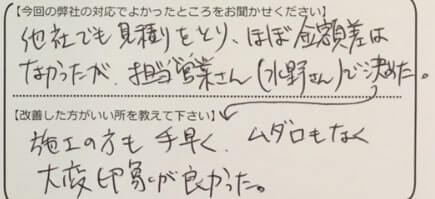 【今回の弊社の対応でよかったところをお聞かせください】
他社でも見積りをとり、ほぼ金額差は
なかったが、担当営業さん(水野さん)で決めた。
【改善した方がいい所を教えて下さい】
施工の方も手早く、ムダ口もなく
大変印象が良かった。